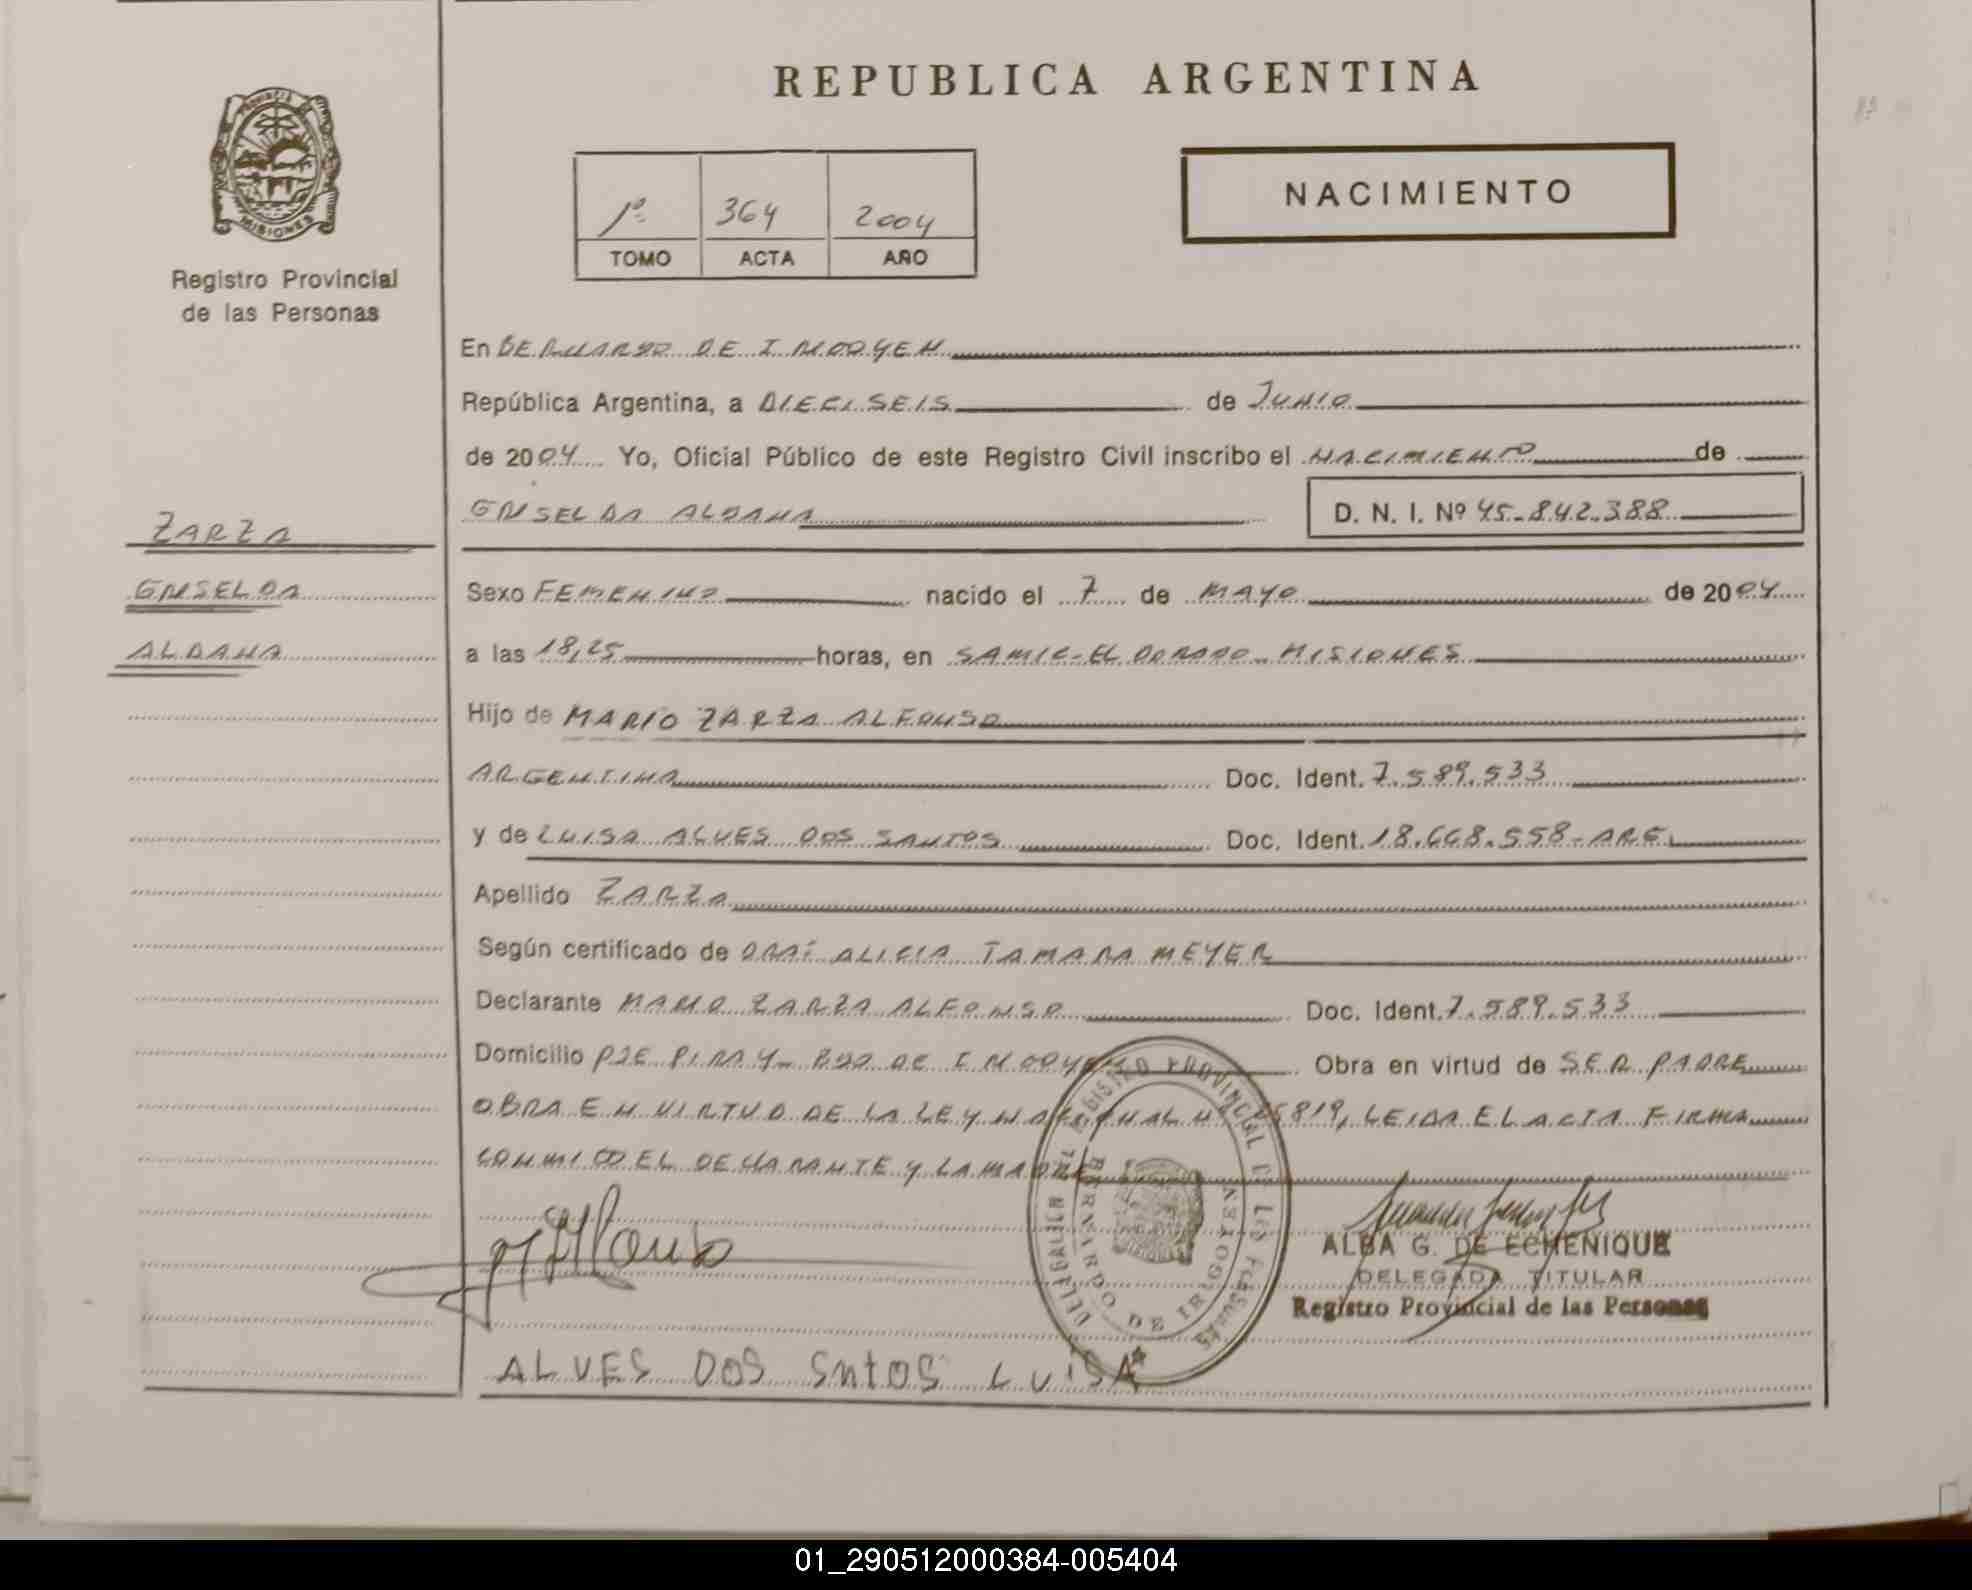 REPUBLICA ARGENTINA
PROVINCIA
MISIONES
Registro Provincial
de las Personas
NACIMIENTO
1º 364 2004
TOMO ACTA AÑO
En BERNARDO DE IRIGOYEN
República Argentina, a DIECISEIS de JUNIO
de 2004 Yo, Oficial Público de este Registro Civil inscribo el NACIMIENTO de
GRISELDA ALDANA D. N. I. Nº 45-842.388
ZARZA
GRISELDA
ALDANA
Sexo FEMENINO nacido el 7 de MAYO de 2004
a las 18,25 horas, en SAMIC-ELDORADO-MISIONES
Hijo de MARIO ZARZA ALFONSO
ARGENTINA Doc. Ident. 7.589.533
y de LUISA ALVES DOS SANTOS Doc. Ident. 18.668.558-ARG.
Apellido ZARZA
Según certificado de DRA: ALICIA TAMARA MEYER
Declarante MARIO ZARZA ALFONSO Doc. Ident. 7.589.533
Domicilio PJE PIRAY- BDO DE IRIGOYEN Obra en virtud de SER PADRE
OBRA EN VIRTUD DE LA LEY NACIONAL Nº 25819, LEIDA EL ACTA FIRMA
CONMIGO EL DECLARANTE Y LA MADRE
DELEGACION DEL REGISTRO PROVINCIAL DE LAS PERSONAS
BERNARDO DE IRIGOYEN
ALBA G. DE ECHENIQUE
DELEGADA TITULAR
Registro Provincial de las Personas
ALVES DOS SntOS LUiSA
01_290512000384-005404